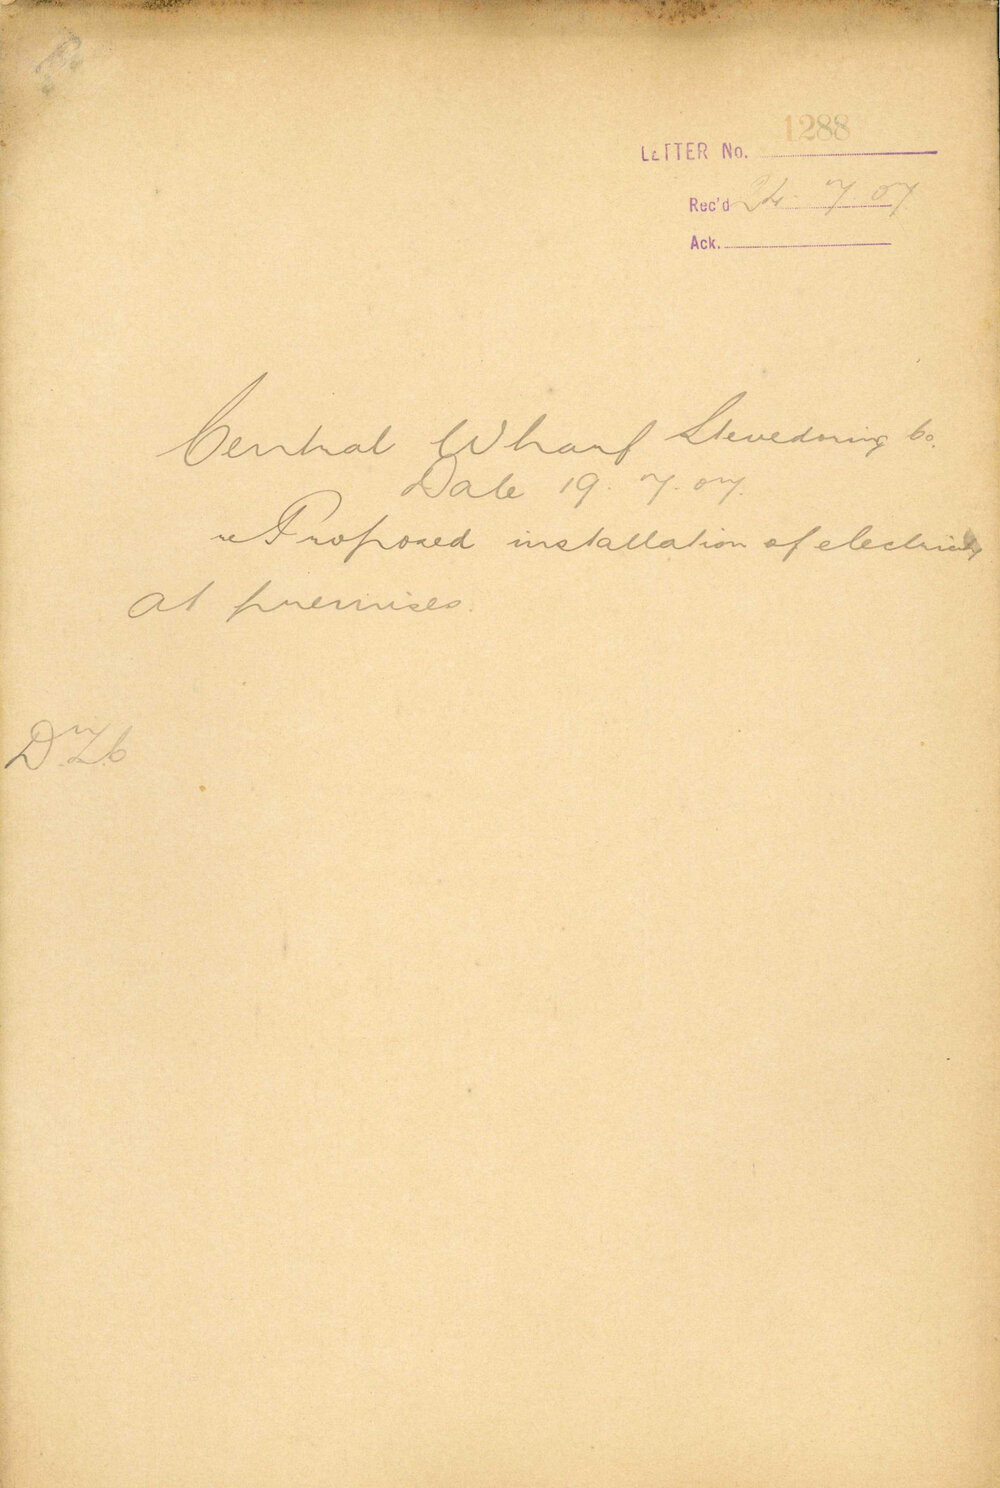 1288
LETTER No.
Rec'd 24. 7 07
Ack.
Central Wharf Stevedoring Co.
Date 19. 7. 07.
re Proposed installation of electricity
at premises.